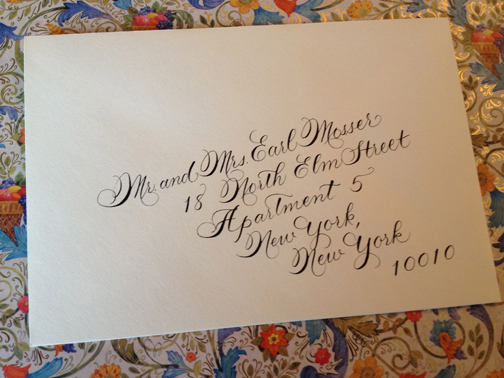 Mr. and Mrs. Earl Mosser
18 North Elm Street
Apartment 5
New York,
New York
10010